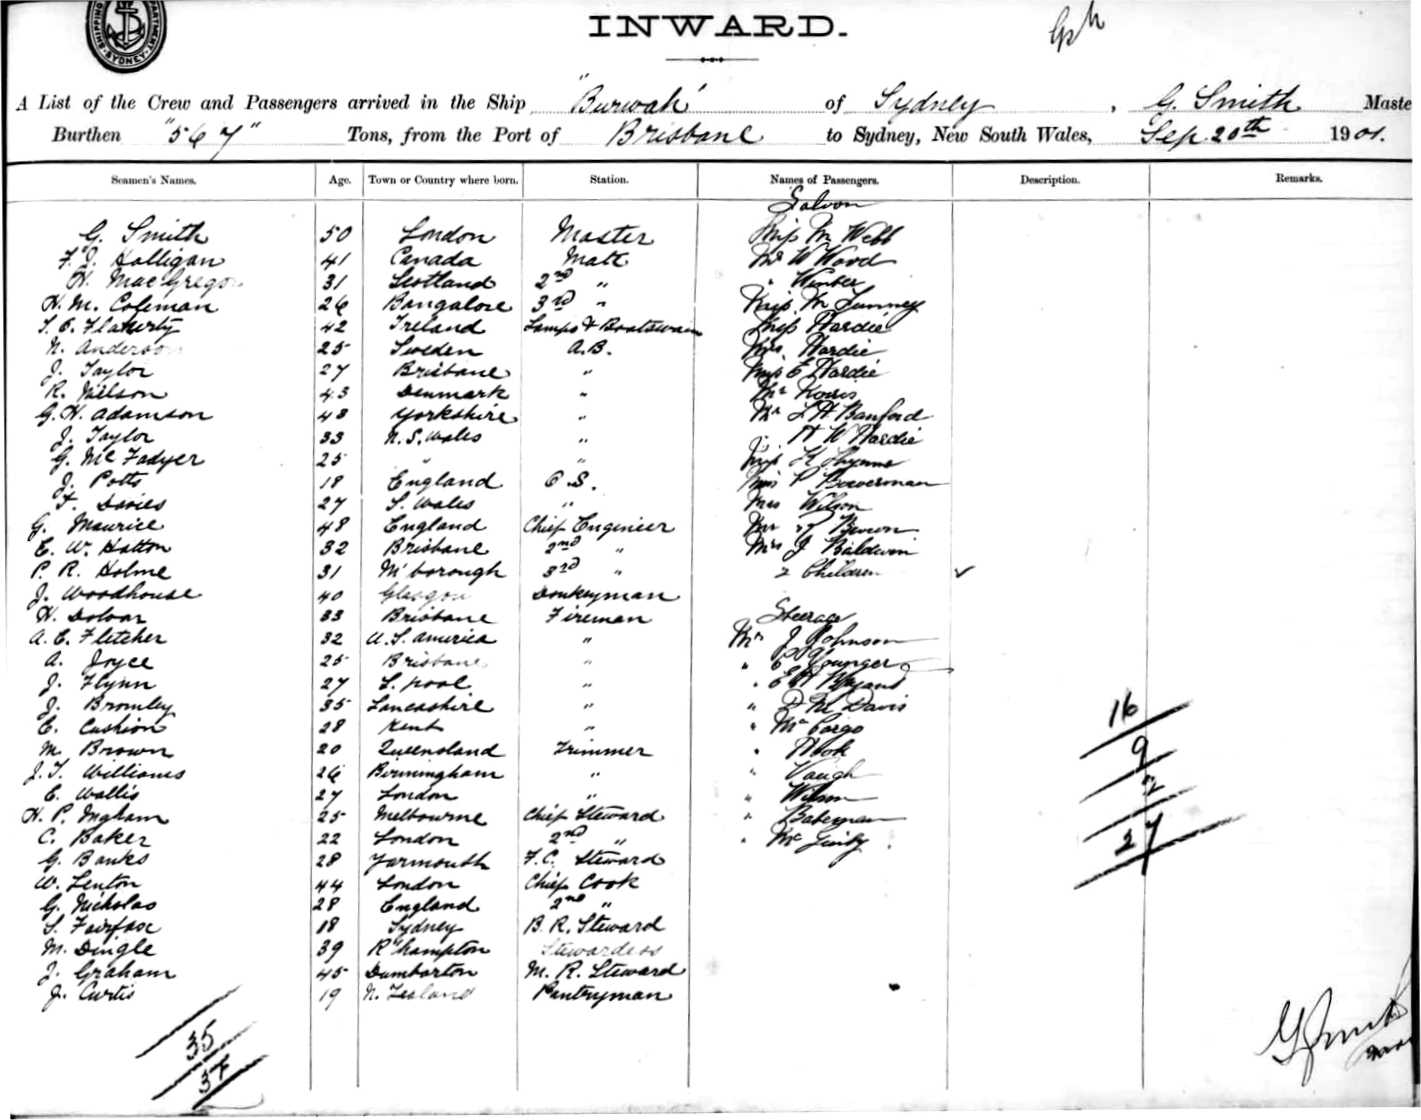 SHIPPING DEPARTMENT SYDNEY
INWARD.
A List of the Crew and Passengers arrived in the Ship "Burwah" of Sydney, G. Smith Maste
Burthen "567" Tons, from the Port of Brisbane to Sydney, New South Wales, Sep 20th 1901.
Seamen's Names. Age. Town or Country where born. Station. Names of Passengers. Description. Remarks.
Saloon
G. Smith 50 London Master Miss M Webb
F. J. Halligan 41 Canada Mate Mr W Wood
H. MacGregor 31 Scotland 2nd " " Winter
H. M. Coleman 26 Bangalore 3rd " Miss M
T. O. Flaherty 42 Ireland Lamps & Boatswain Miss Hardie
N. Anderson 25 Sweden A.B. Mrs Hardie
J. Taylor 27 Brisbane " Miss E Hardie
R. Neilson 43 Denmark " Mr
G. H. Adamson 48 Yorkshire " Mr L H Banford
J. Taylor 33 N. S. Wales " " H W Hardie
G. McFadyer 25 " " Miss
J. Potts 18 England O.S. Miss P Bowerman
F. Davies 27 S. Wales " Mrs Wilson
G. Maurice 48 England Chief Engineer Mr
E. W. Hatton 32 Brisbane 2nd " Mrs J Baldwin
P. R. Holme 31 M'borough 3rd " 2 Children ✓
J. Woodhouse 40 Glasgow Donkeyman
H. Dolvar 33 Brisbane Fireman Steerage
A. E. Fletcher 32 U. S. America " Mr J Johnson
A. Joyce 25 Brisbane " " Younger
J. Flynn 27 L. pool " "
J. Bromley 35 Lancashire " " D M Davis
E. Cushion 28 Kent " " McCargo
M. Brown 20 Queensland Trimmer " Hook
J. T. Williams 26 Birmingham " " Vaugh
E. Wallis 27 London " " Wilson
H. P. Ingham 25 Melbourne Chief Steward " Bateman
C. Baker 22 London 2nd " "
G. Banks 28 Yarmouth F. C. Steward
W. Lenton 44 London Chief Cook
G. Nicholas 28 England 2nd "
S. Fairfax 18 Sydney B. R. Steward
M. Dingle 39 R'hampton Stewardess
J. Graham 45 Dumbarton M. R. Steward
J. Curtis 19 N. Zealand Pantryman
16
9
2
27
35
G Smith